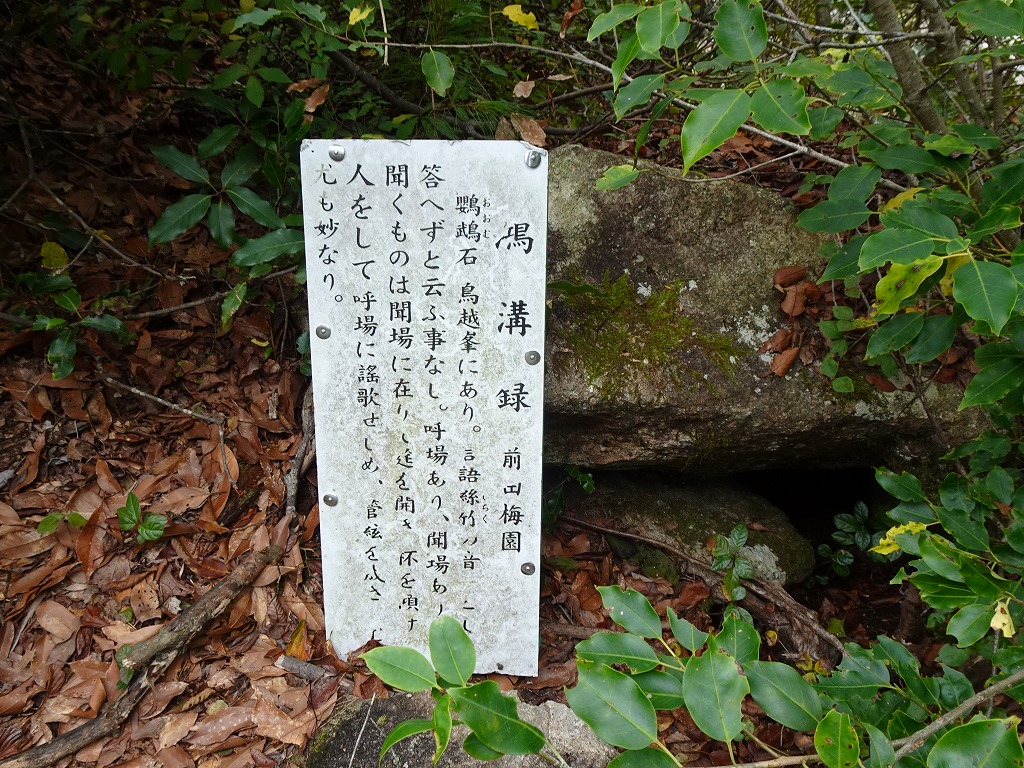 鴻溝録 前田梅園
鸚鵡石 鳥越峯にあり。言語絲竹の音
おおむ
いちく
答へずと云ふ事なし。呼場あり、聞場あり
聞くものは聞場に在り 筵を開き 杯を傾け
人をして呼場に謡歌せしめ、管絃を
尤も妙なり。